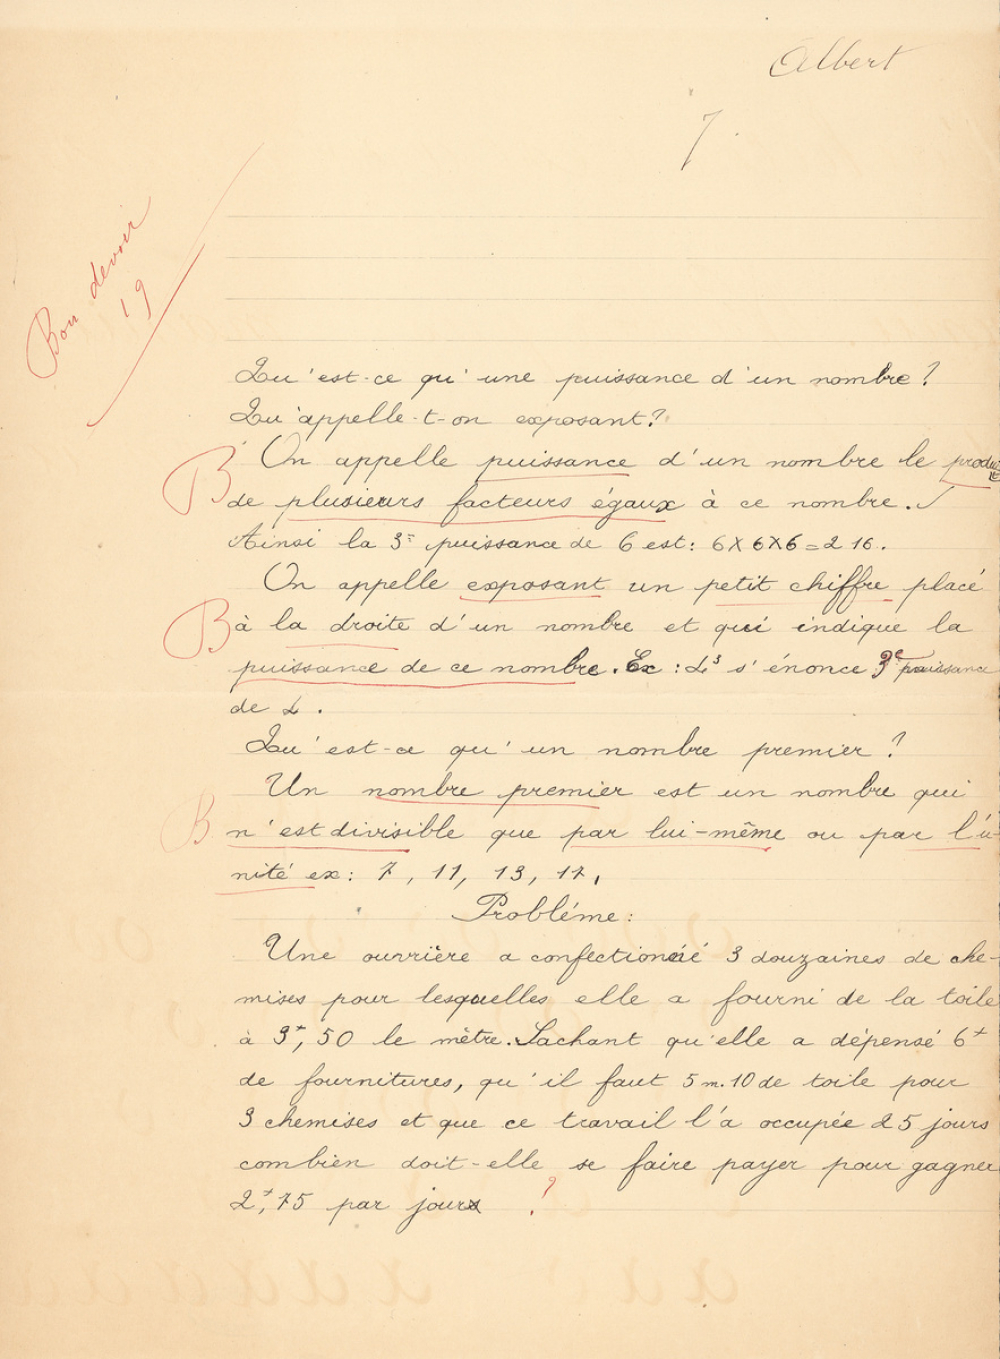 Albert
7.
Bon devoir
19
Qu'est-ce qu'une puissance d'un nombre ?
Qu'appelle-t-on exposant ?
B On appelle puissance d'un nombre le produit
de plusieurs facteurs égaux à ce nombre.
Ainsi la 3e puissance de 6 est : 6 X 6 X 6 = 216.
On appelle exposant un petit chiffre placé
B à la droite d'un nombre et qui indique la
puissance de ce nombre. Ex : 2³ s'énonce 3e puissance
de 2.
Qu'est-ce qu'un nombre premier ?
Un nombre premier est un nombre qui
B n'est divisible que par lui-même ou par l'u-
nité ex : 7, 11, 13, 17,
Probléme :
Une ouvrière a confectionné 3 douzaines de che-
mises pour lesquelles elle a fourni de la toile
à 3f, 50 le mètre. Sachant qu'elle a dépensé 6f
de fournitures, qu'il faut 5 m. 10 de toile pour
3 chemises et que ce travail l'a occupée 25 jours
combien doit-elle se faire payer pour gagner
2f, 75 par jour ?